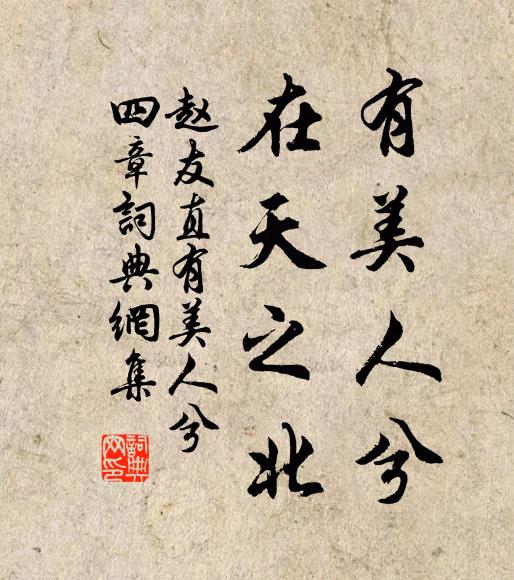 有美人兮
在天之北
赵友直有美人兮
四章詞典網集
詞典
网印